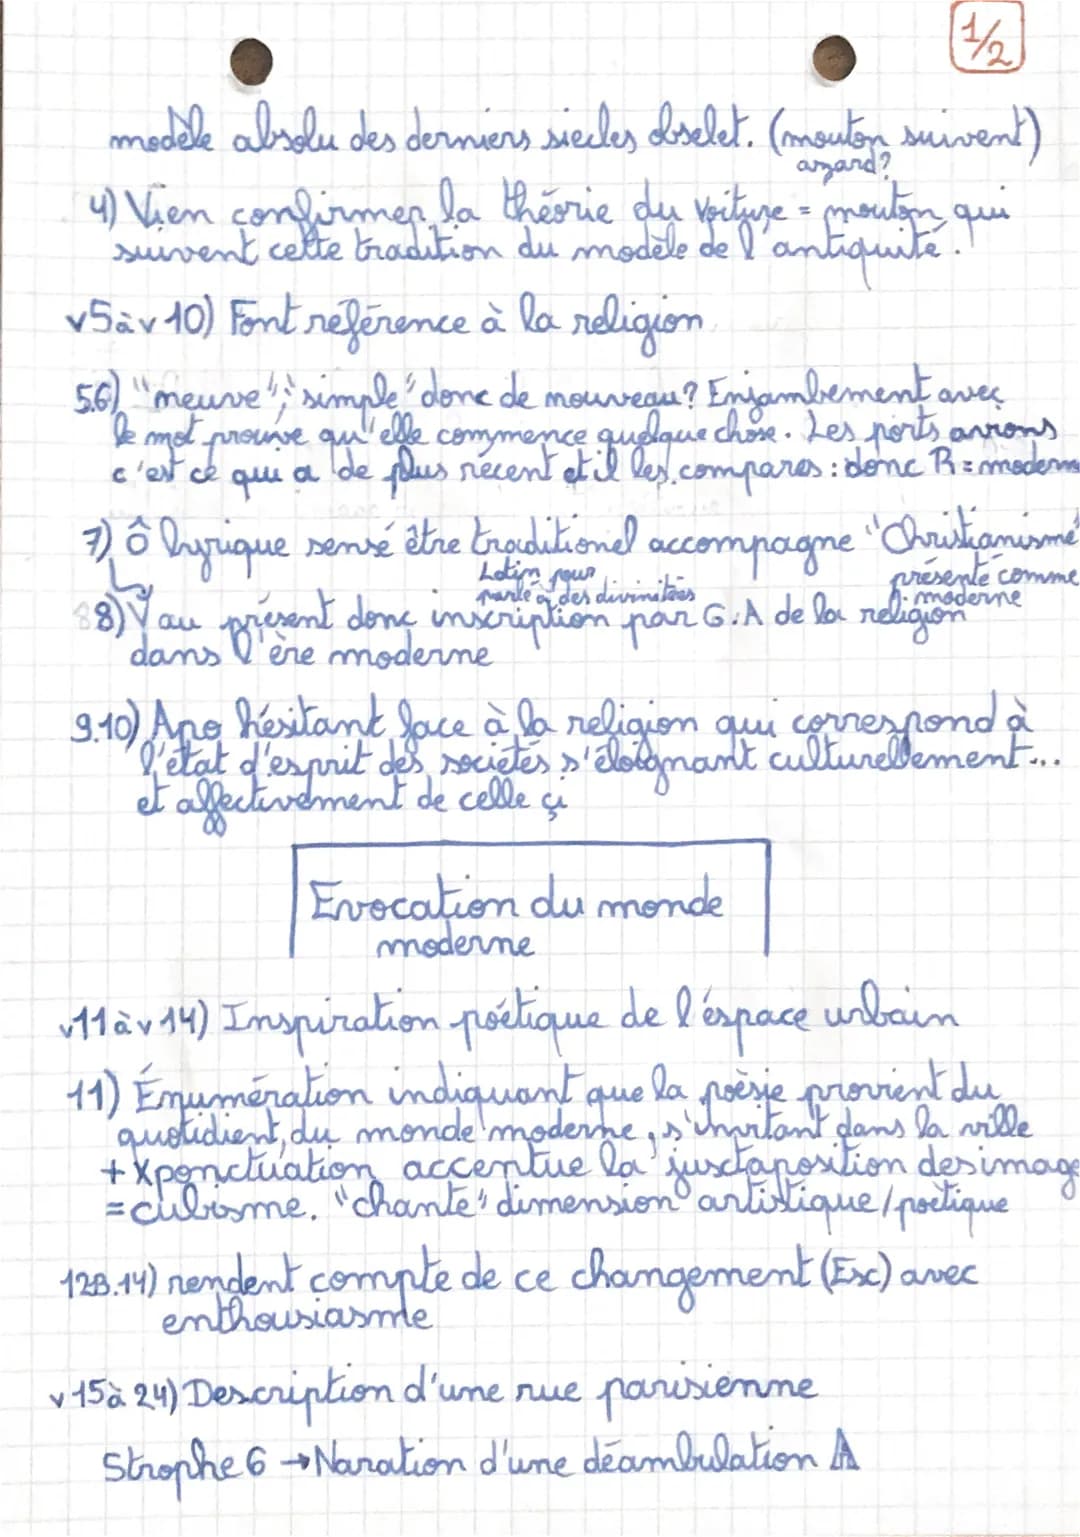 1/2
modèle absolu des derniers siecles obselet. (mouton suivent)
azard?
4) Vien confirmer la théorie du voiture = mouton qui
suivent cette tradition du modèle de l'antiquité.
v5àv10) Font référence à la religion
5.6) "neuve"; "simple" donc de nouveau? Enjambement avec
le mot prouve qu'elle commence quelque chose. Les ports avions
c'est ce qui a de plus récent et il les compares : donc R = moderne
7) Ô lyrique sensé être traditionel accompagne "Christianisme"
Latin pour
parlé à des divinitées
présenté comme
moderne
8) V au présent donc inscription par G.A de la religion
dans l'ère moderne
9.10) Apo hésitant face à la religion qui correspond à
l'état d'esprit des sociétés s'éloignant culturellement...
et affectivement de celle çi
Evocation du monde
moderne
v11àv14) Inspiration poétique de l'éspace urbain
11) Énumération indiquant que la poèsie provient du
quotidient, du monde moderne, s'invitant dans la ville
+ Xponctuation accentue la juxtaposition des image
= cubisme. "chante" dimension artistique / poètique
12B.14) rendent compte de ce changement (Esc) avec
enthousiasme
v15à 24) Description d'une rue parisiénne
Strophe 6 → Naration d'une déambulation A